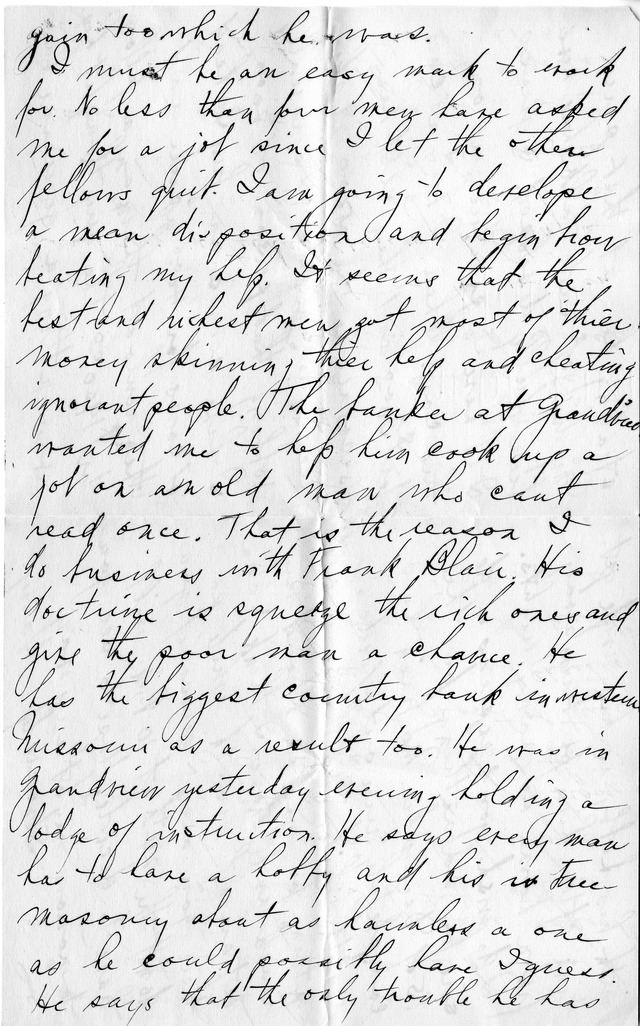 gain too which he was.
I must be an easy mark to work
for. No less than four men have asked
me for a job since I let the other
fellows quit. I am going to develope
a mean disposition and begin brow
beating my help. It seems that the
best and richest men got most of thier
money skinning thier help and cheating
ignorant people. The banker at Grandview
wanted me to help him cook up a
job on an old man who cant
read once. That is the reason I
do business with Frank Blair. His
doctrine is squeeze the rich ones and
give the poor man a chance. He
has the biggest country bank in western
Missouri as a result too. He was in
Grandview yesterday evening holding a
lodge of instruction. He says every man
ha to have a hobby and his is Free
masonry about as harmless a one
as he could possibly have I guess.
He says that the only trouble he has